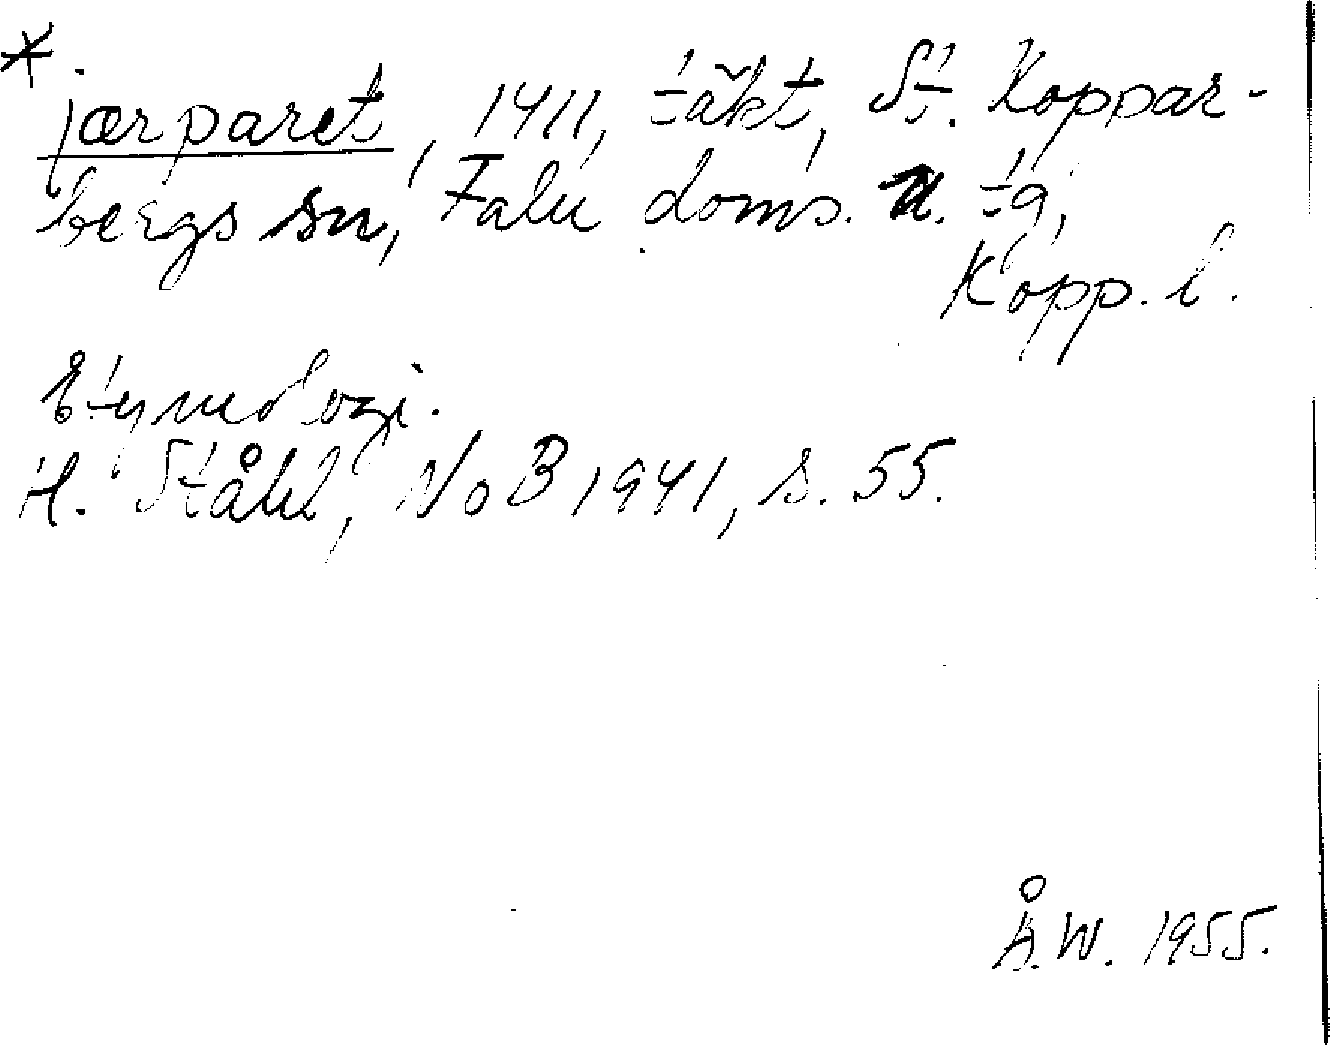 * jærparet, 1411, täkt, St. Koppar-
bergs sn, Falu doms. tg,
Kopp. l.
Etymologi.
H. Ståhl, NoB 1941, s. 55.
Å.W. 1955.